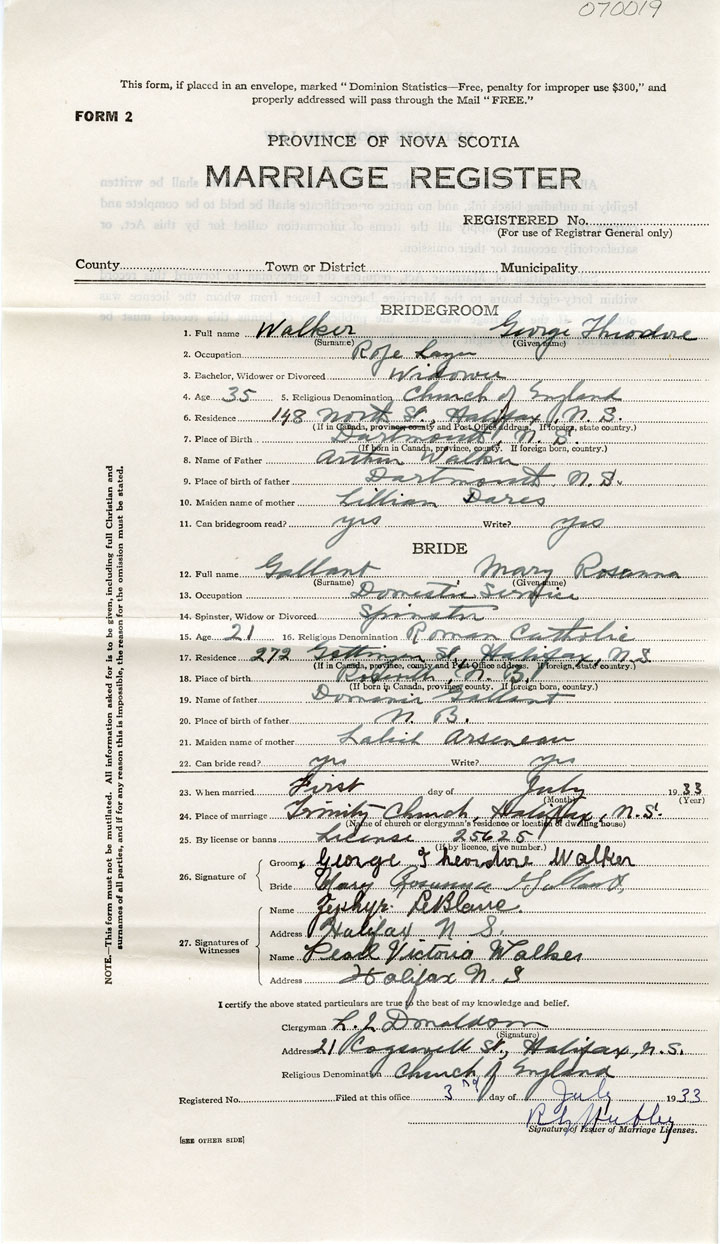 070019
This form, if placed in an envelope, marked "Dominion Statistics—Free, penalty for improper use $300," and
properly addressed will pass through the Mail "FREE."
FORM 2
PROVINCE OF NOVA SCOTIA
MARRIAGE REGISTER
REGISTERED No.
(For use of Registrar General only)
County Town or District Municipality
BRIDEGROOM
1. Full name Walker George Theodore
(Surname) (Given name)
2. Occupation Rope Layer
3. Bachelor, Widower or Divorced Widower
4. Age 35 5. Religious Denomination Church of England
6. Residence 148 North St., Halifax, N.S.
(If in Canada, province, county and Post Office address. If foreign, state country.)
7. Place of Birth Dartmouth, N.S.
(If born in Canada, province, county. If foreign born, country.)
8. Name of Father Arthur Walker
9. Place of birth of father Dartmouth N.S.
10. Maiden name of mother Lillian Dares
11. Can bridegroom read? yes Write? yes
BRIDE
12. Full name Gallant Mary Rosanna
(Surname) (Given name)
13. Occupation Domestic Service
14. Spinster, Widow or Divorced Spinster
15. Age 21 16. Religious Denomination Roman Catholic
17. Residence 272 Gottingen St., Halifax, N.S.
(If in Canada, province, county and Post Office address. If foreign, state country.)
18. Place of birth N.B.
(If born in Canada, province, county. If foreign born, country.)
19. Name of father Gallant
20. Place of birth of father N.B.
21. Maiden name of mother Arseneau
22. Can bride read? yes Write? yes
23. When married First day of July 1933
(Month) (Year)
24. Place of marriage Trinity Church, Halifax, N.S.
(Name of church or clergyman's residence or location of dwelling house)
25. By license or banns License 25625
(If by licence, give number.)
26. Signature of Groom George Theodore Walker
Bride Mary Rosanna Gallant
27. Signatures of Witnesses Name Zephyr LeBlanc.
Address Halifax N S.
Name Pearl Victoria Walker
Address Halifax N.S
I certify the above stated particulars are true to the best of my knowledge and belief.
Clergyman L. J. Donaldson
(Signature)
Address 21 Cogswell St., Halifax, N.S.
Religious Denomination Church of England
Registered No. Filed at this office 3rd day of July 1933
Signature of Issuer of Marriage Licenses.
[SEE OTHER SIDE]
NOTE.—This form must not be mutilated. All information asked for is to be given, including full Christian and
surnames of all parties, and if for any reason this is impossible, the reason for the omission must be stated.